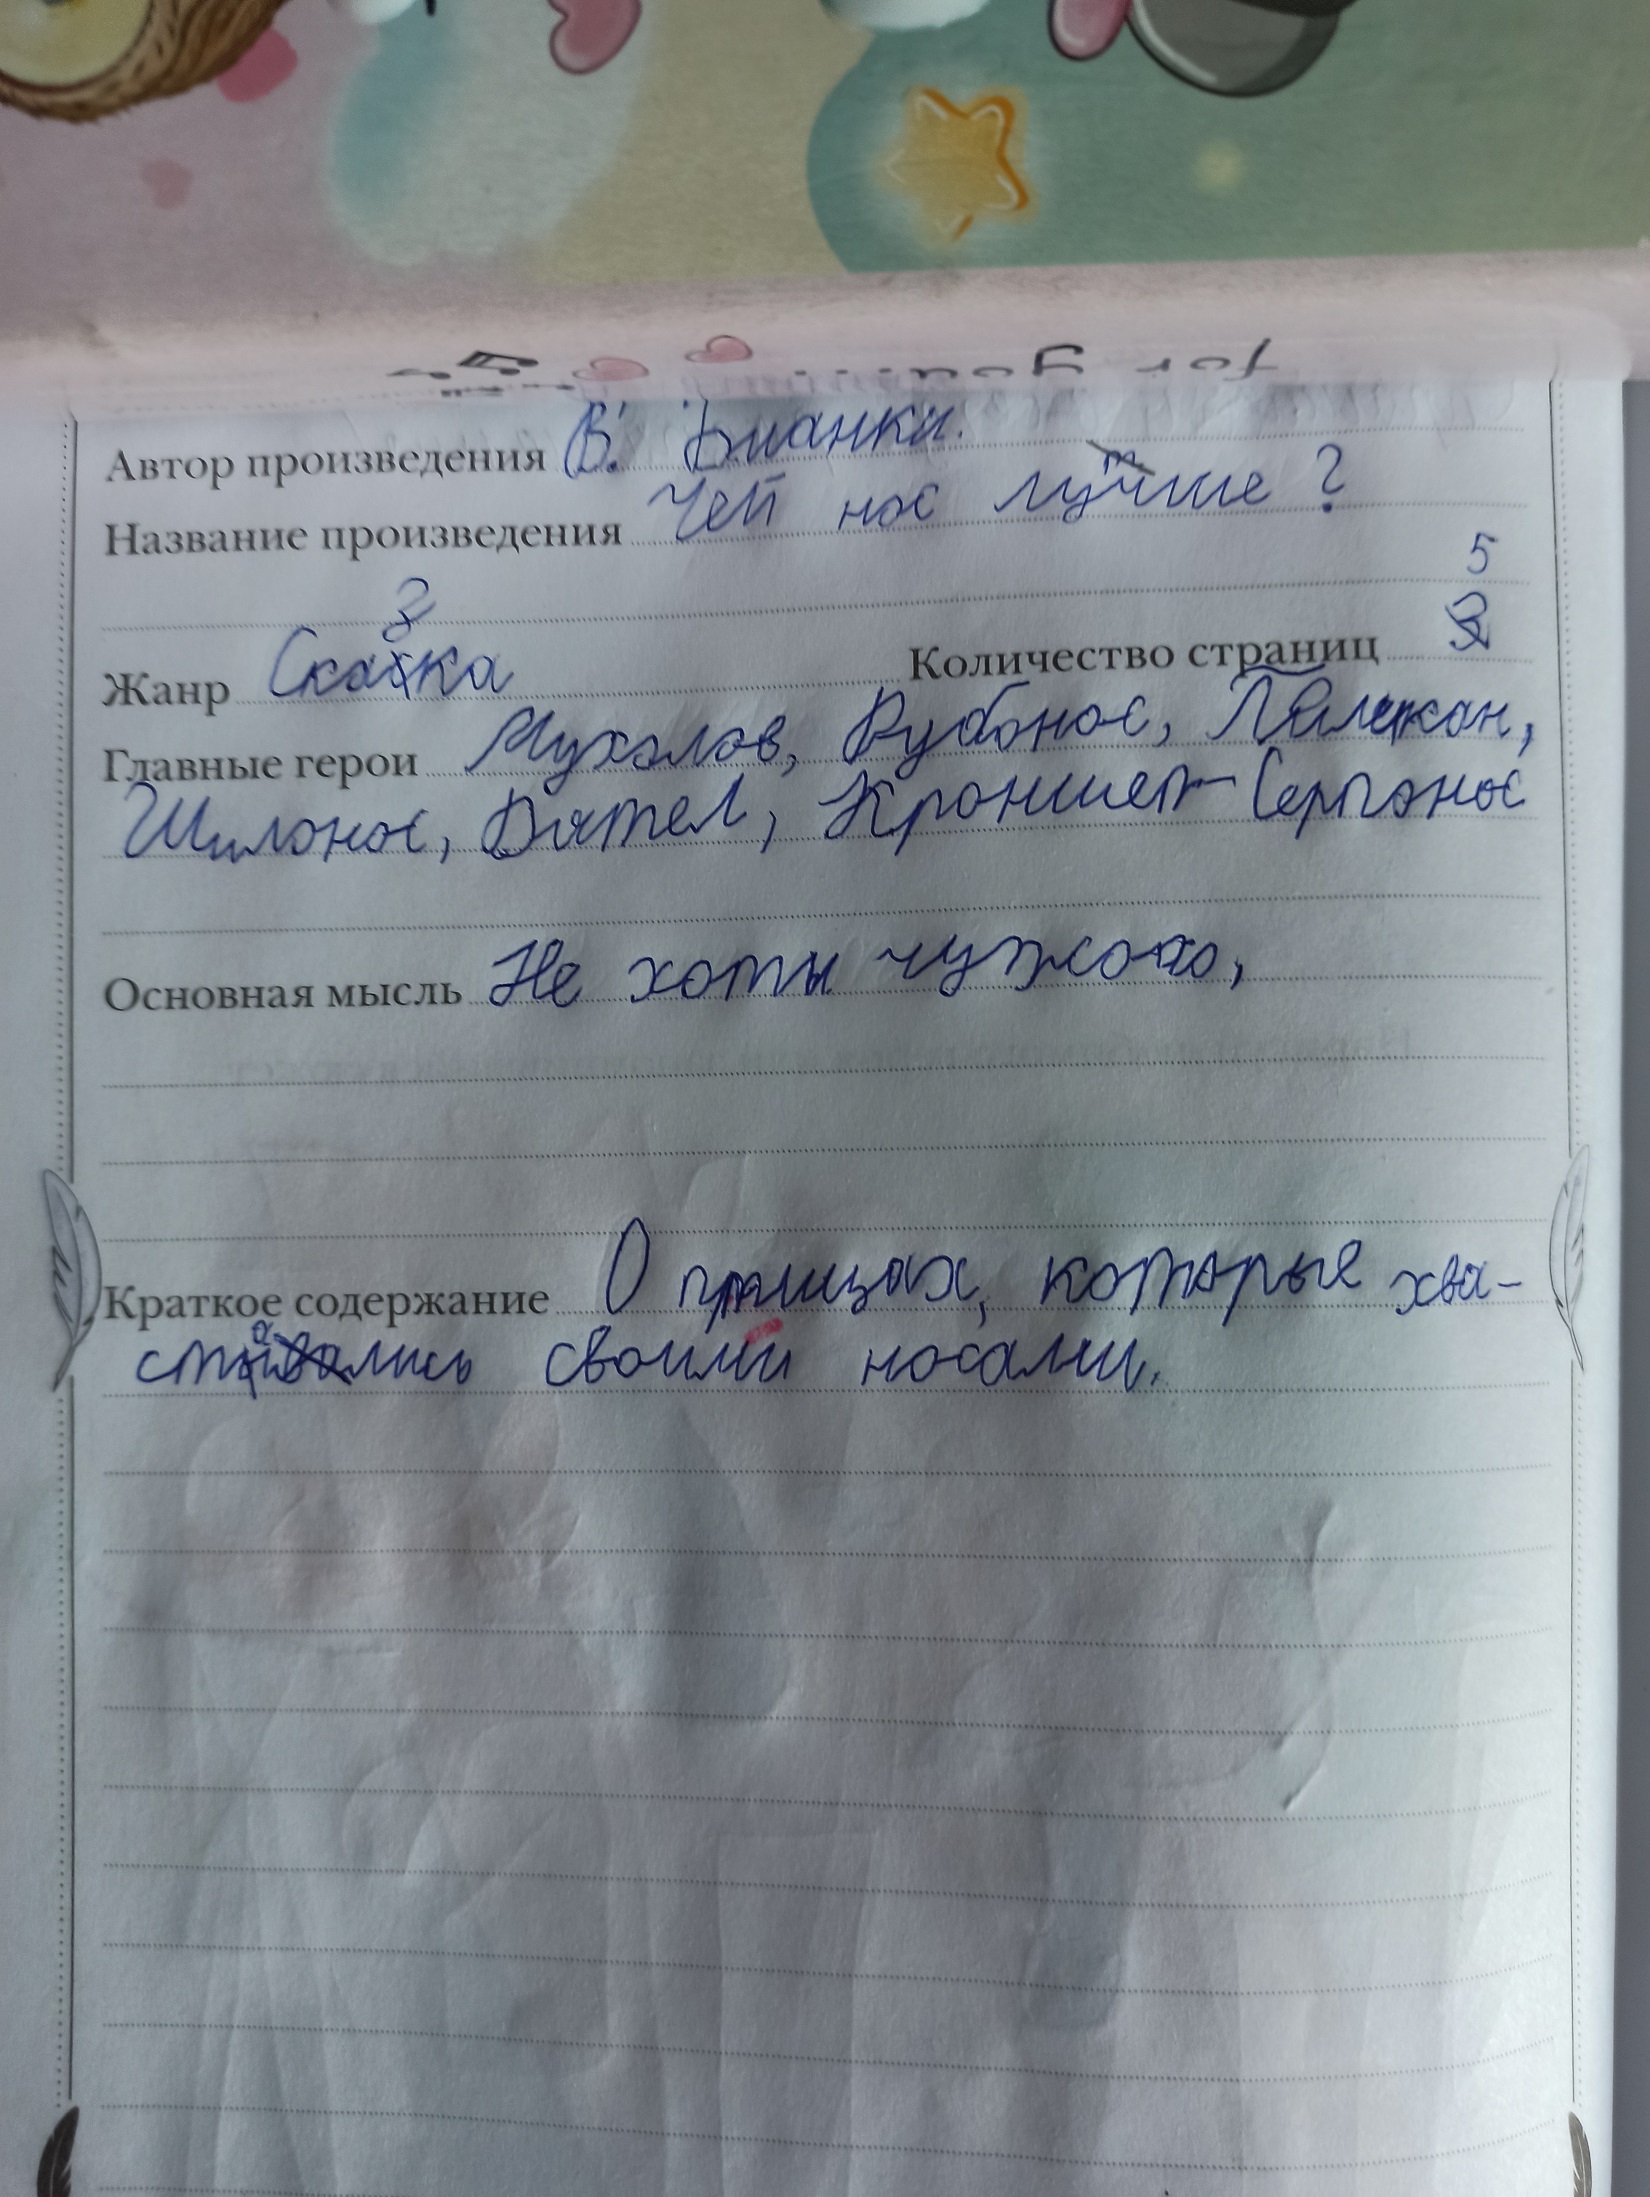 for you
Автор произведения В. Бианки.
Название произведения Чей нос лучше ?
5
Жанр Сказка Количество страниц
Главные герои Мухолов, Рубонос, Пеликан,
Шилонос, Дятел, Кроншеп-Серпонос
Основная мысль Не хоти чужого,
Краткое содержание О птицах, которые хва-
стались своими носами.